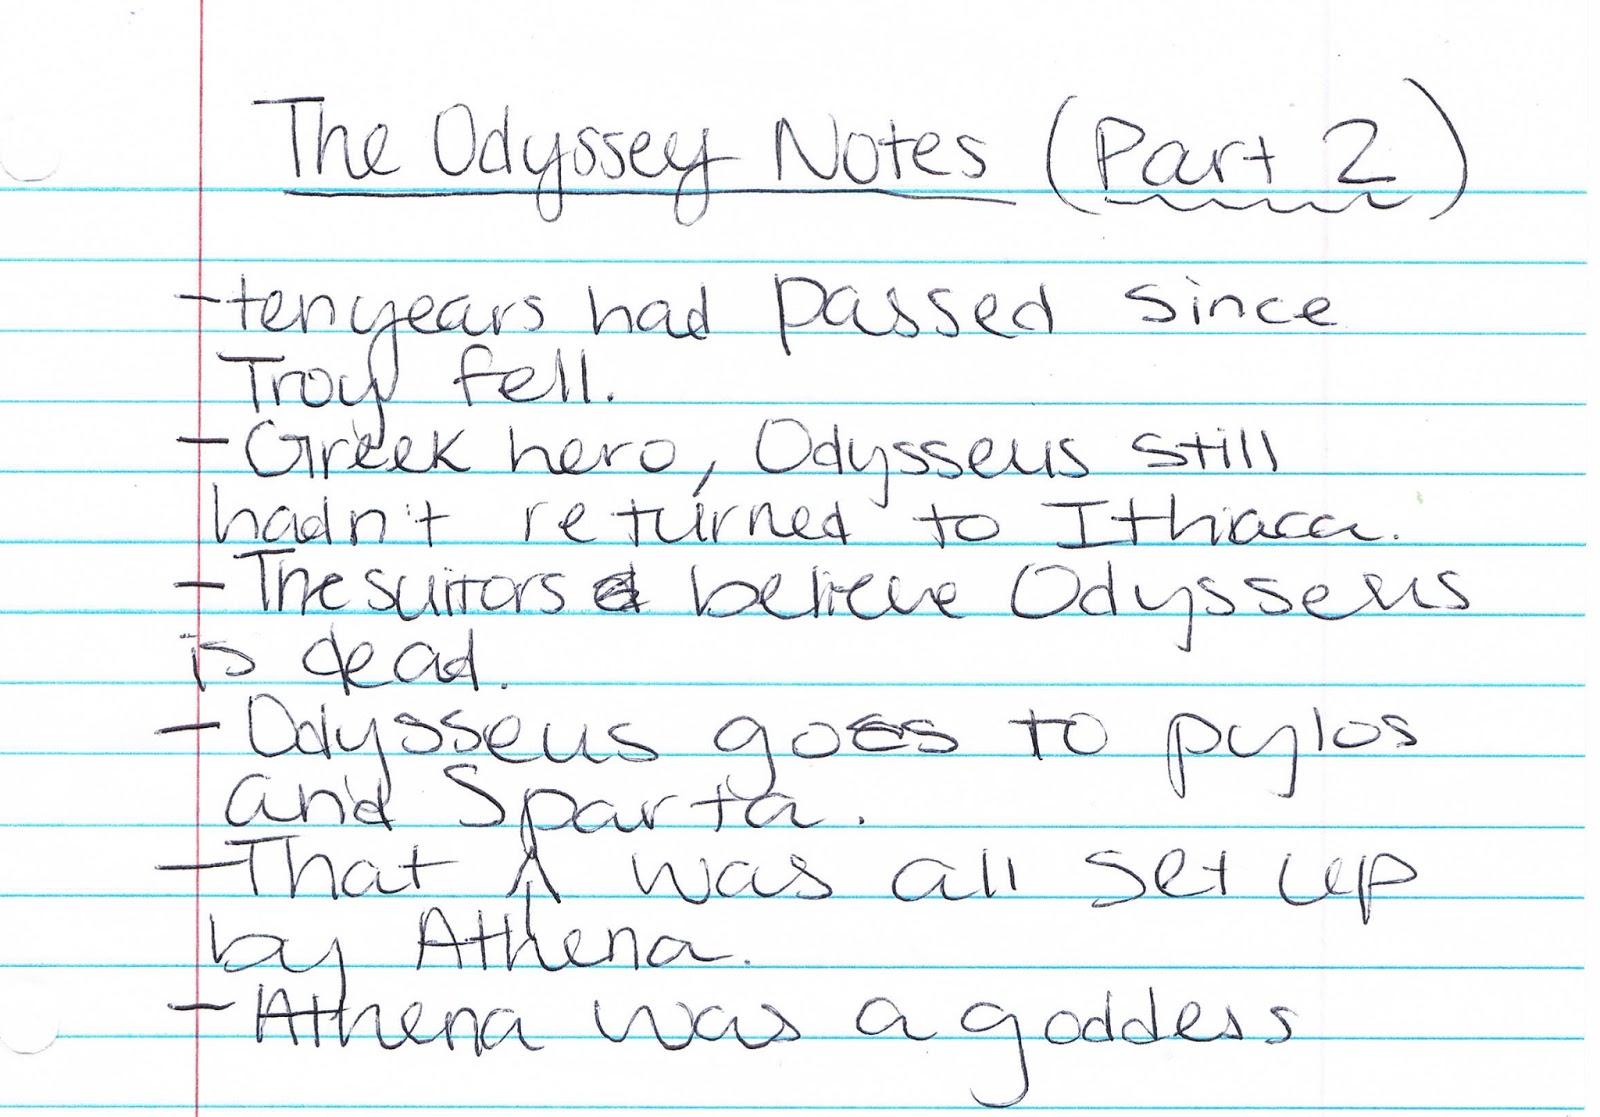 The Odyssey Notes (Part 2)
- ten years had passed since
Troy fell.
- Greek hero, Odysseus still
hadn't returned to Ithaca.
- The suitors believe Odysseus
is dead.
- Odysseus goes to pylos
and Sparta.
- That was all set up
by Athena.
- Athena was a goddess